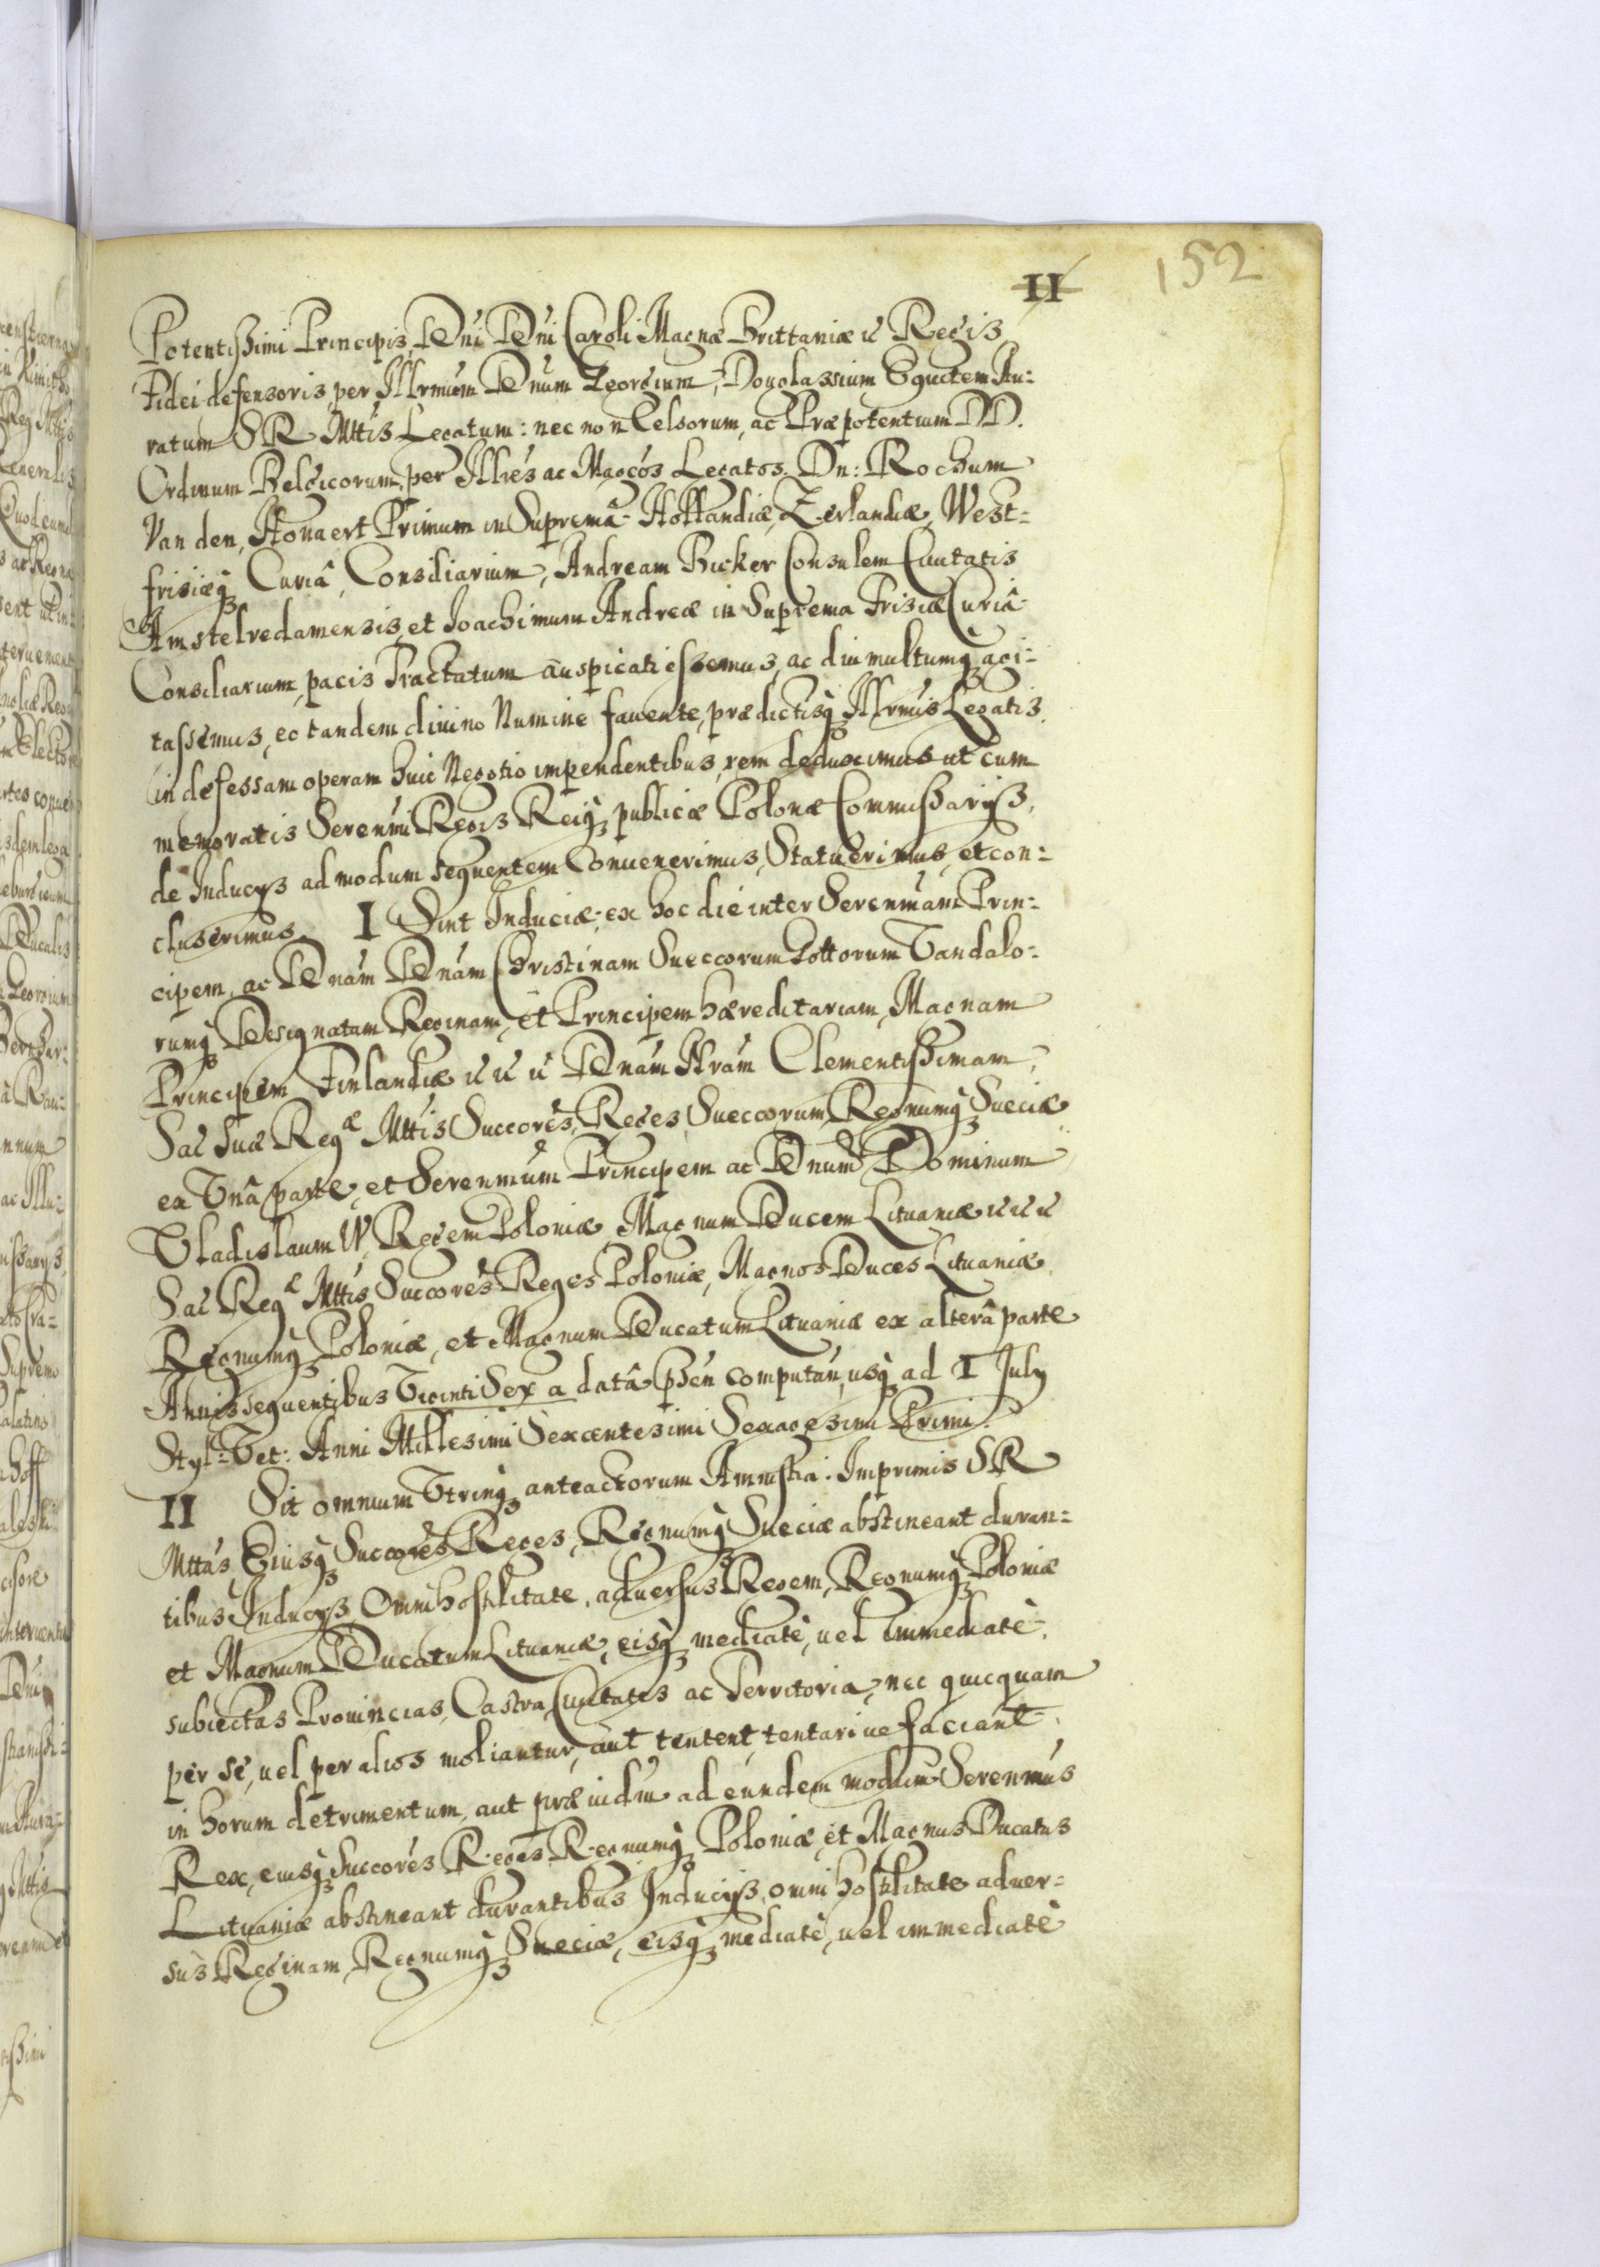 152
II
Potentißimi Principis, Dni Dni Caroli Magnæ Brittaniæ &c Regis
Fidei defensoris per Illrmum Dnum Georgium Douglassium Equitem Au-
ratum SR Mttis Legatum: nec non Celsorum, ac Præpotentium DD.
Ordinum Belgicorum, per Illres ac Magcos Legatos. Dn: Rochum
Van den, Honaert Primum in Supremâ Hollandiæ, Zerlandiæ, West-
frisiæq Curiâ, Consiliarium, Andream Bicker Consulem Ciuitatis
Amstelredamensis, et Ioachimum Andreæ in Suprema Frisiæ Curiâ
Consiliarium, pacis Tractatum auspicati essemus, ac diu multumq agi-
tassemus, eo tandem diuino Numine fauente, prædictisq Illrmis Legatis
indefessam operam huic Negotio impendentibus, rem deduximus ut cum
memoratis Serenmi Regis Reiq publicæ Polonæ Commißarijs,
de Inducijs ad modum sequentem Conuenerimus, Statuerimus, et con-
cluserimus. I Sint Induciæ ex hoc die inter Serenmam Prin-
cipem, ac Dnam Dnam Christinam Sueccorum Gottorum Vandalo-
rumq Designatam Reginam, et Principem hæreditariam, Magnam
Principem Finlandiæ &c &c &c Dnam Nram Clementißimam,
Sac Suæ Regæ Mttis Succores, Reges Sueccorum, Regnumq Sueciæ
ex Vnâ parte, et Serenmum Principem ac Dnum Dominum
Vladislaum IV, Regem Poloniæ, Magnum Ducem Lituaniæ &c &c &c
Sac Regæ Mttis Succores Reges Poloniæ, Magnos Duces Lituaniæ
Regnumq Poloniæ, et Magnum Ducatum Lituaniæ ex alterâ parte
Annis sequentibus Viginti Sex a datâ psen computan, usq ad I July
Styl: Vet: Anni Millesimi Sexcentesimi Sexagesimi Primi.
II Sit omnium Vtrinq anteactorum Amnistia. Imprimis SR
Mttas Eiusq Succores Reges, Regnumq Sueciæ abstineant duran-
tibus Inducijs, Omni hostilitate, aduersus Regem, Regnumq Poloniæ
et Magnum Ducatum Lituaniæ, eisq mediatè, uel immediatè
subiectas Prouincias, Castra Ciuitates ac Territoria, nec quicquam
per se, uel per alios moliantur, aut tentent, tentariue faciant
in horum detrimentum, aut præiudm ad eundem modum Serenmus
Rex, eiusq Succores Reges Regnumq Poloniæ, et Magnus Ducatus
Lituaniæ abstineant durantibus Inducijs, omni hostilitate aduer-
sus Reginam, Regnumq Sueciæ, eisq mediatè, uel immediatè